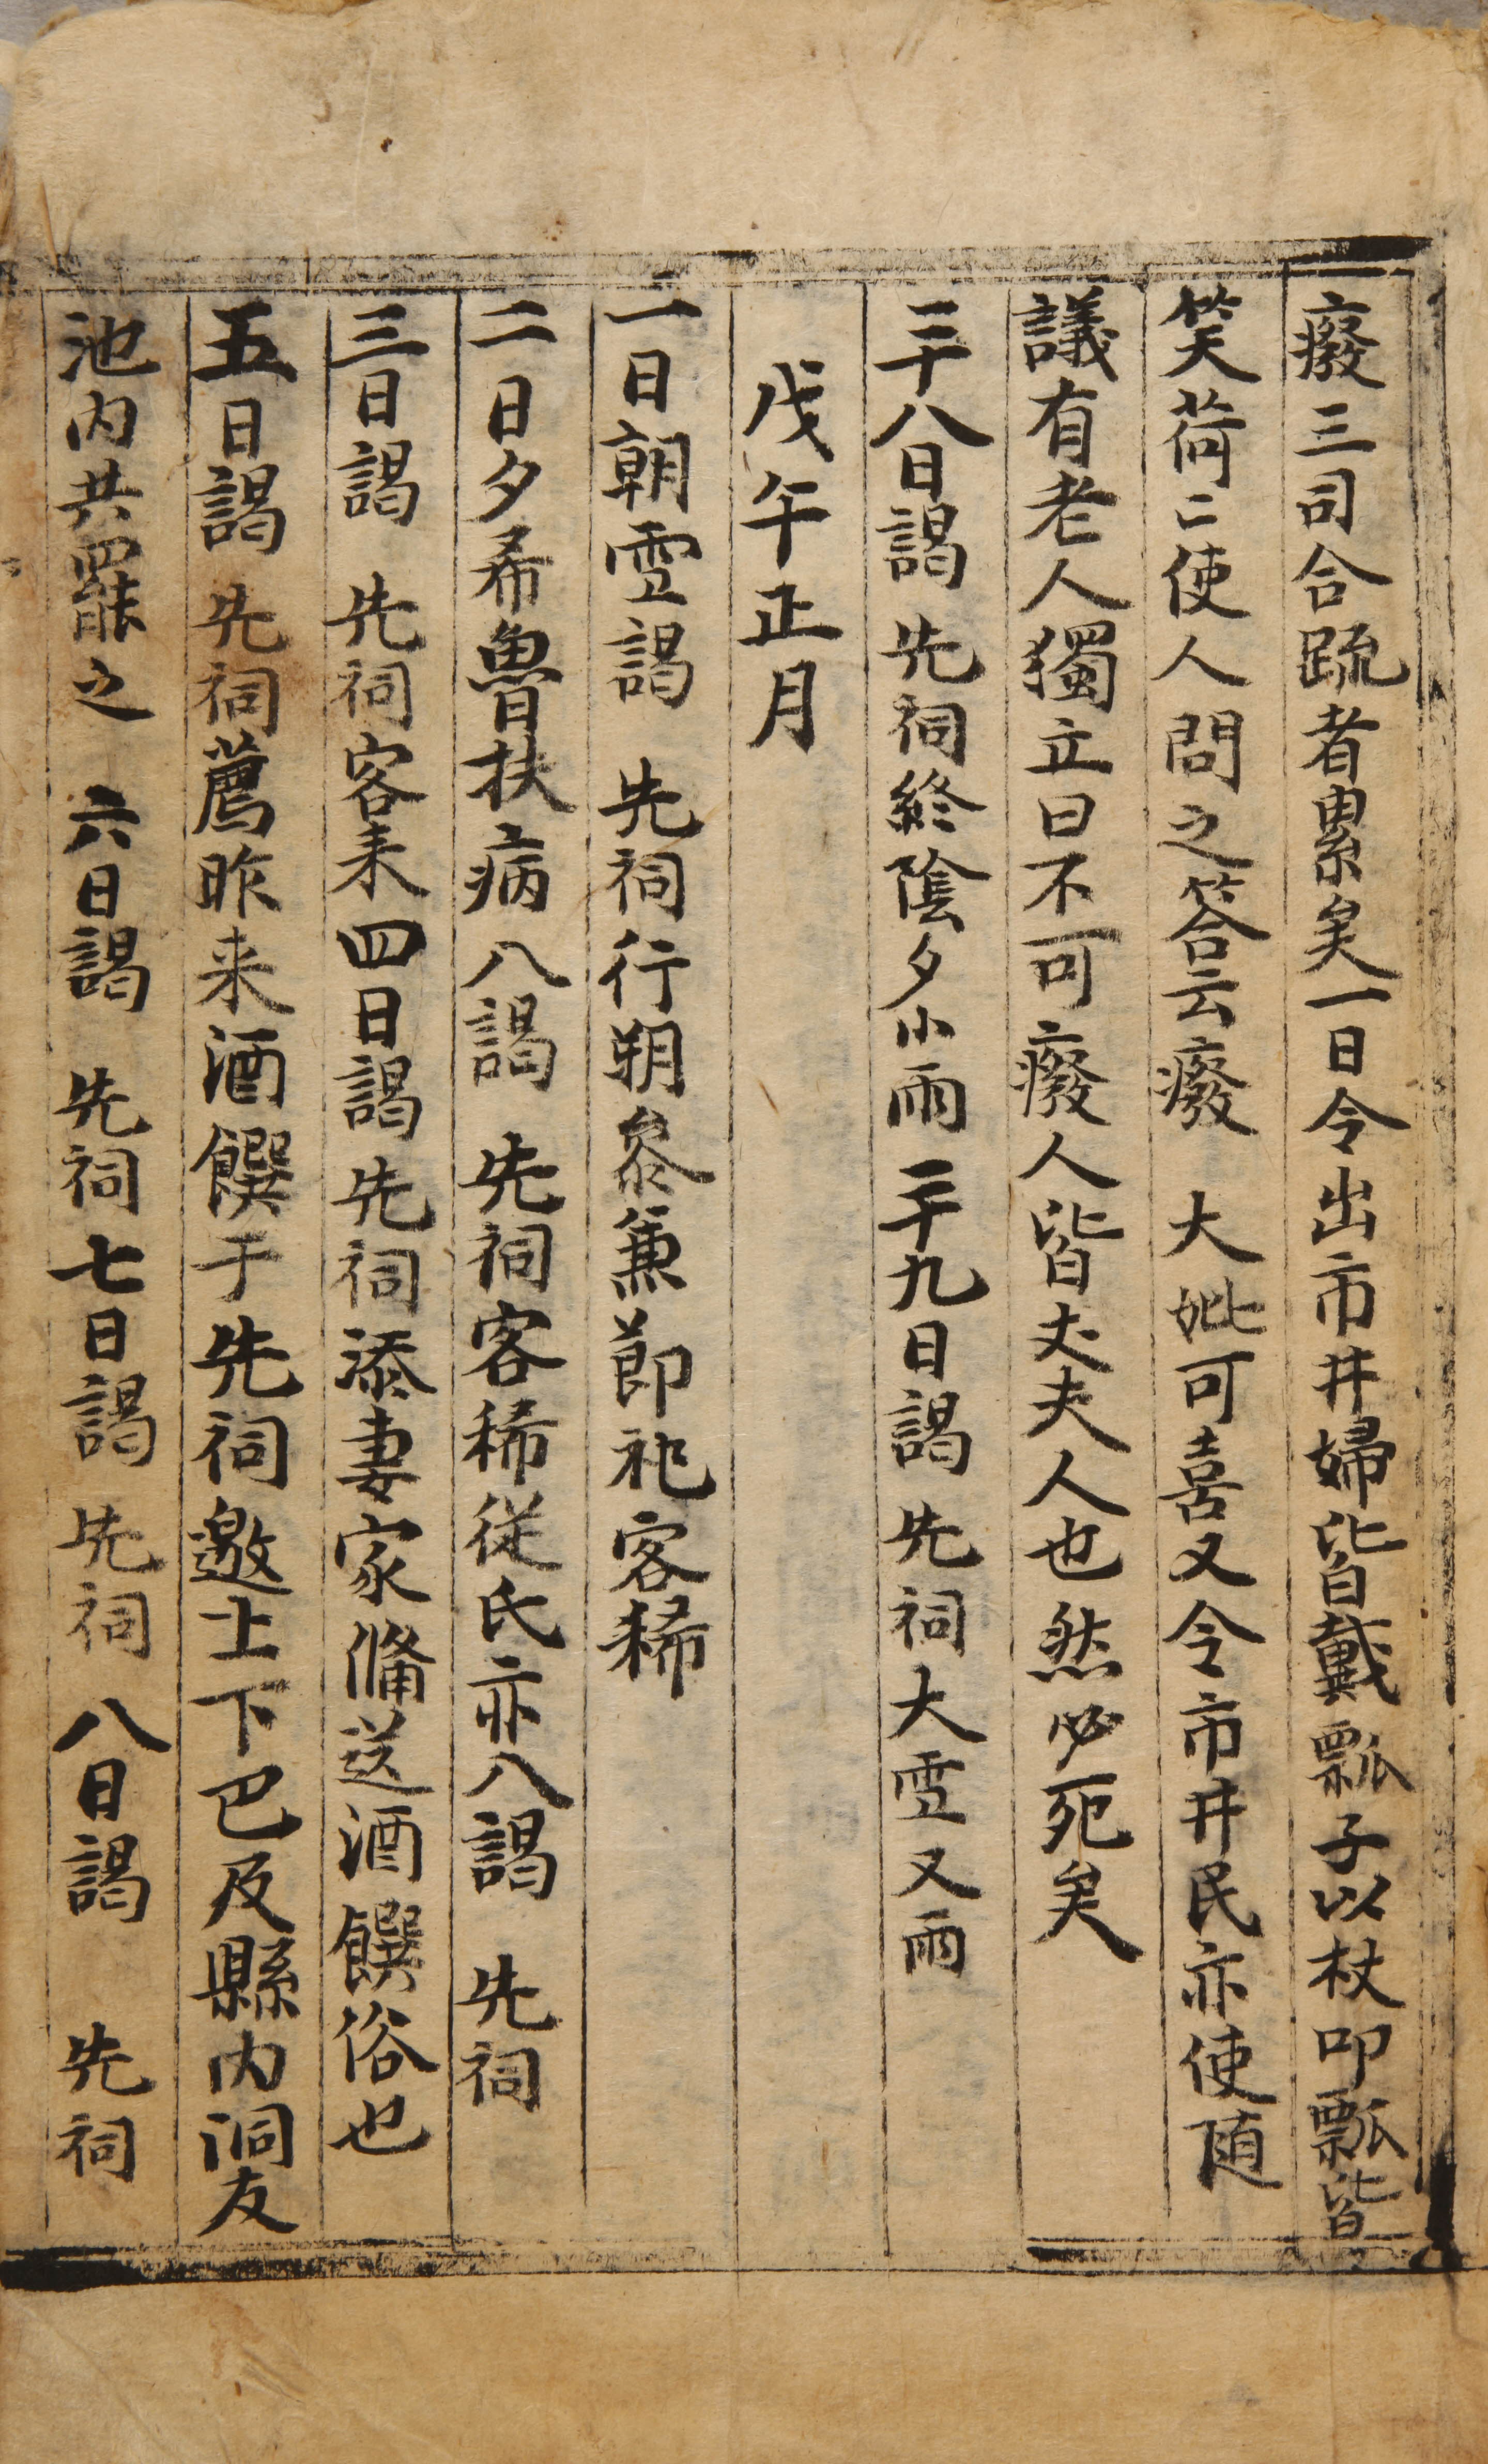 癈三司合䟽者累矣一日令出市井婦皆戴瓢子以杖叩瓢皆
笑荷二使人問之答云癈 大妣可喜又令市井民亦使随
議有老人獨立曰不可癈人皆丈夫人也然必死矣
二十八日謁 先祠終陰夕小雨 二十九日謁 先祠大雪又雨
戊午正月
一日朝雪謁 先祠行朔叅兼節祀客稀
二日夕希魯扶病入謁 先祠客稀従氏亦入謁 先祠
三日謁 先祠客来四日謁先祠添妻家俻送酒饌俗也
五日謁 先祠薦昨来酒饌于先祠邀上下巴及縣内洞友
池内共罷之 六日謁 先祠七日謁 先祠 八日謁 先祠